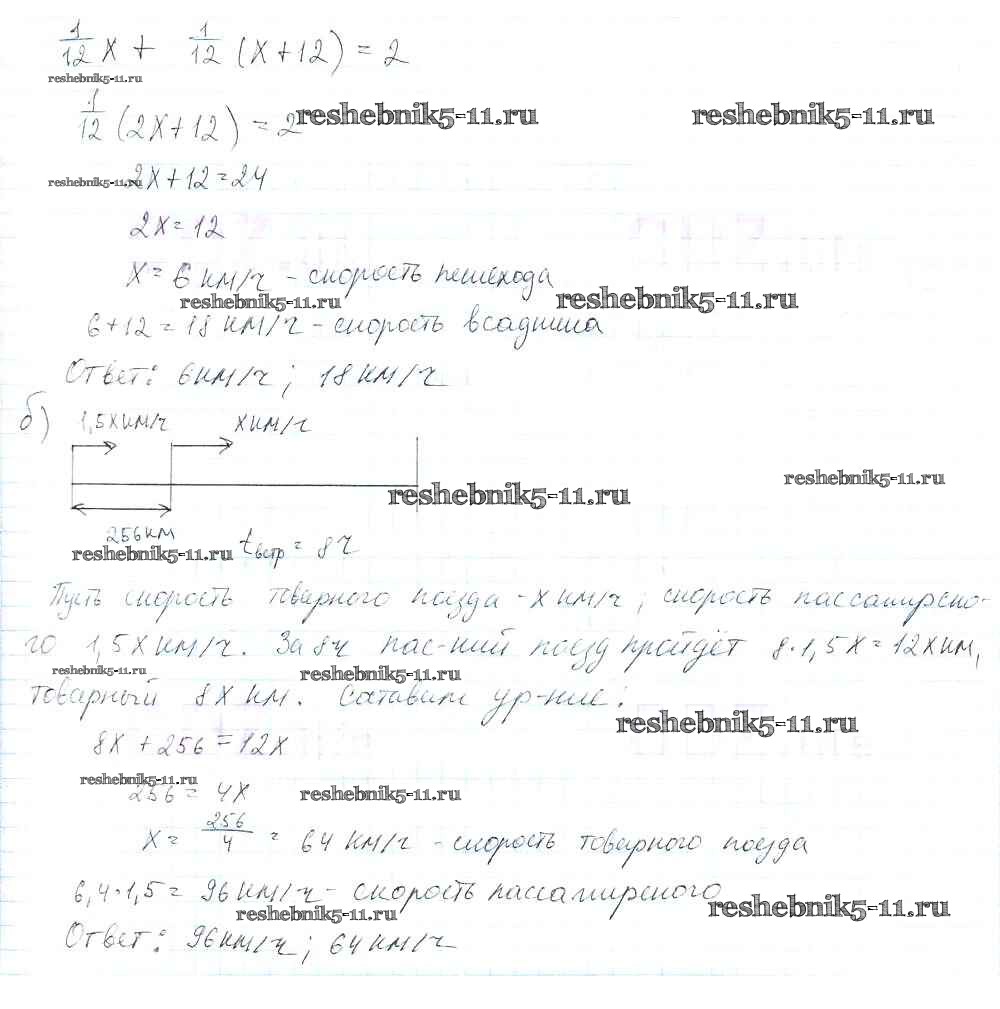 1/12 x + 1/12 (x+12) = 2
reshebnik5-11.ru
1/12 (2x+12) = 2
reshebnik5-11.ru reshebnik5-11.ru
2x+12=24
reshebnik5-11.ru
2x=12
x= 6 км/ч - скорость пешехода
reshebnik5-11.ru reshebnik5-11.ru
6+12 = 18 км/ч - скорость всадника
Ответ: 6км/ч ; 18 км/ч
б) 1,5x км/ч x км/ч
reshebnik5-11.ru
reshebnik5-11.ru
256 км
reshebnik5-11.ru tвстр = 8ч
Пусть скорость товарного поезда - x км/ч ; скорость пассажирско-
го 1,5x км/ч. За 8ч пас-кий поезд пройдёт 8·1,5x = 12x км,
reshebnik5-11.ru reshebnik5-11.ru
товарный 8x км. Составим ур-ние:
reshebnik5-11.ru
8x + 256 = 12x
reshebnik5-11.ru
256 = 4x
reshebnik5-11.ru
x = 256/4 = 64 км/ч - скорость товарного поезда
6,4·1,5 = 96 км/ч - скорость пассажирского
reshebnik5-11.ru reshebnik5-11.ru
Ответ: 96км/ч ; 64 км/ч